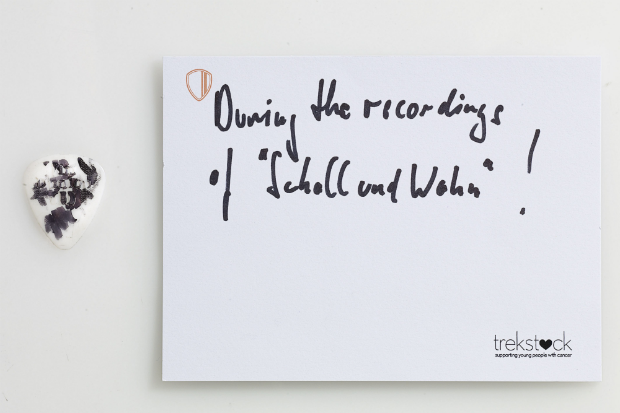 During the recordings
of "Schall und Wahn" !
trekstock
supporting young people with cancer